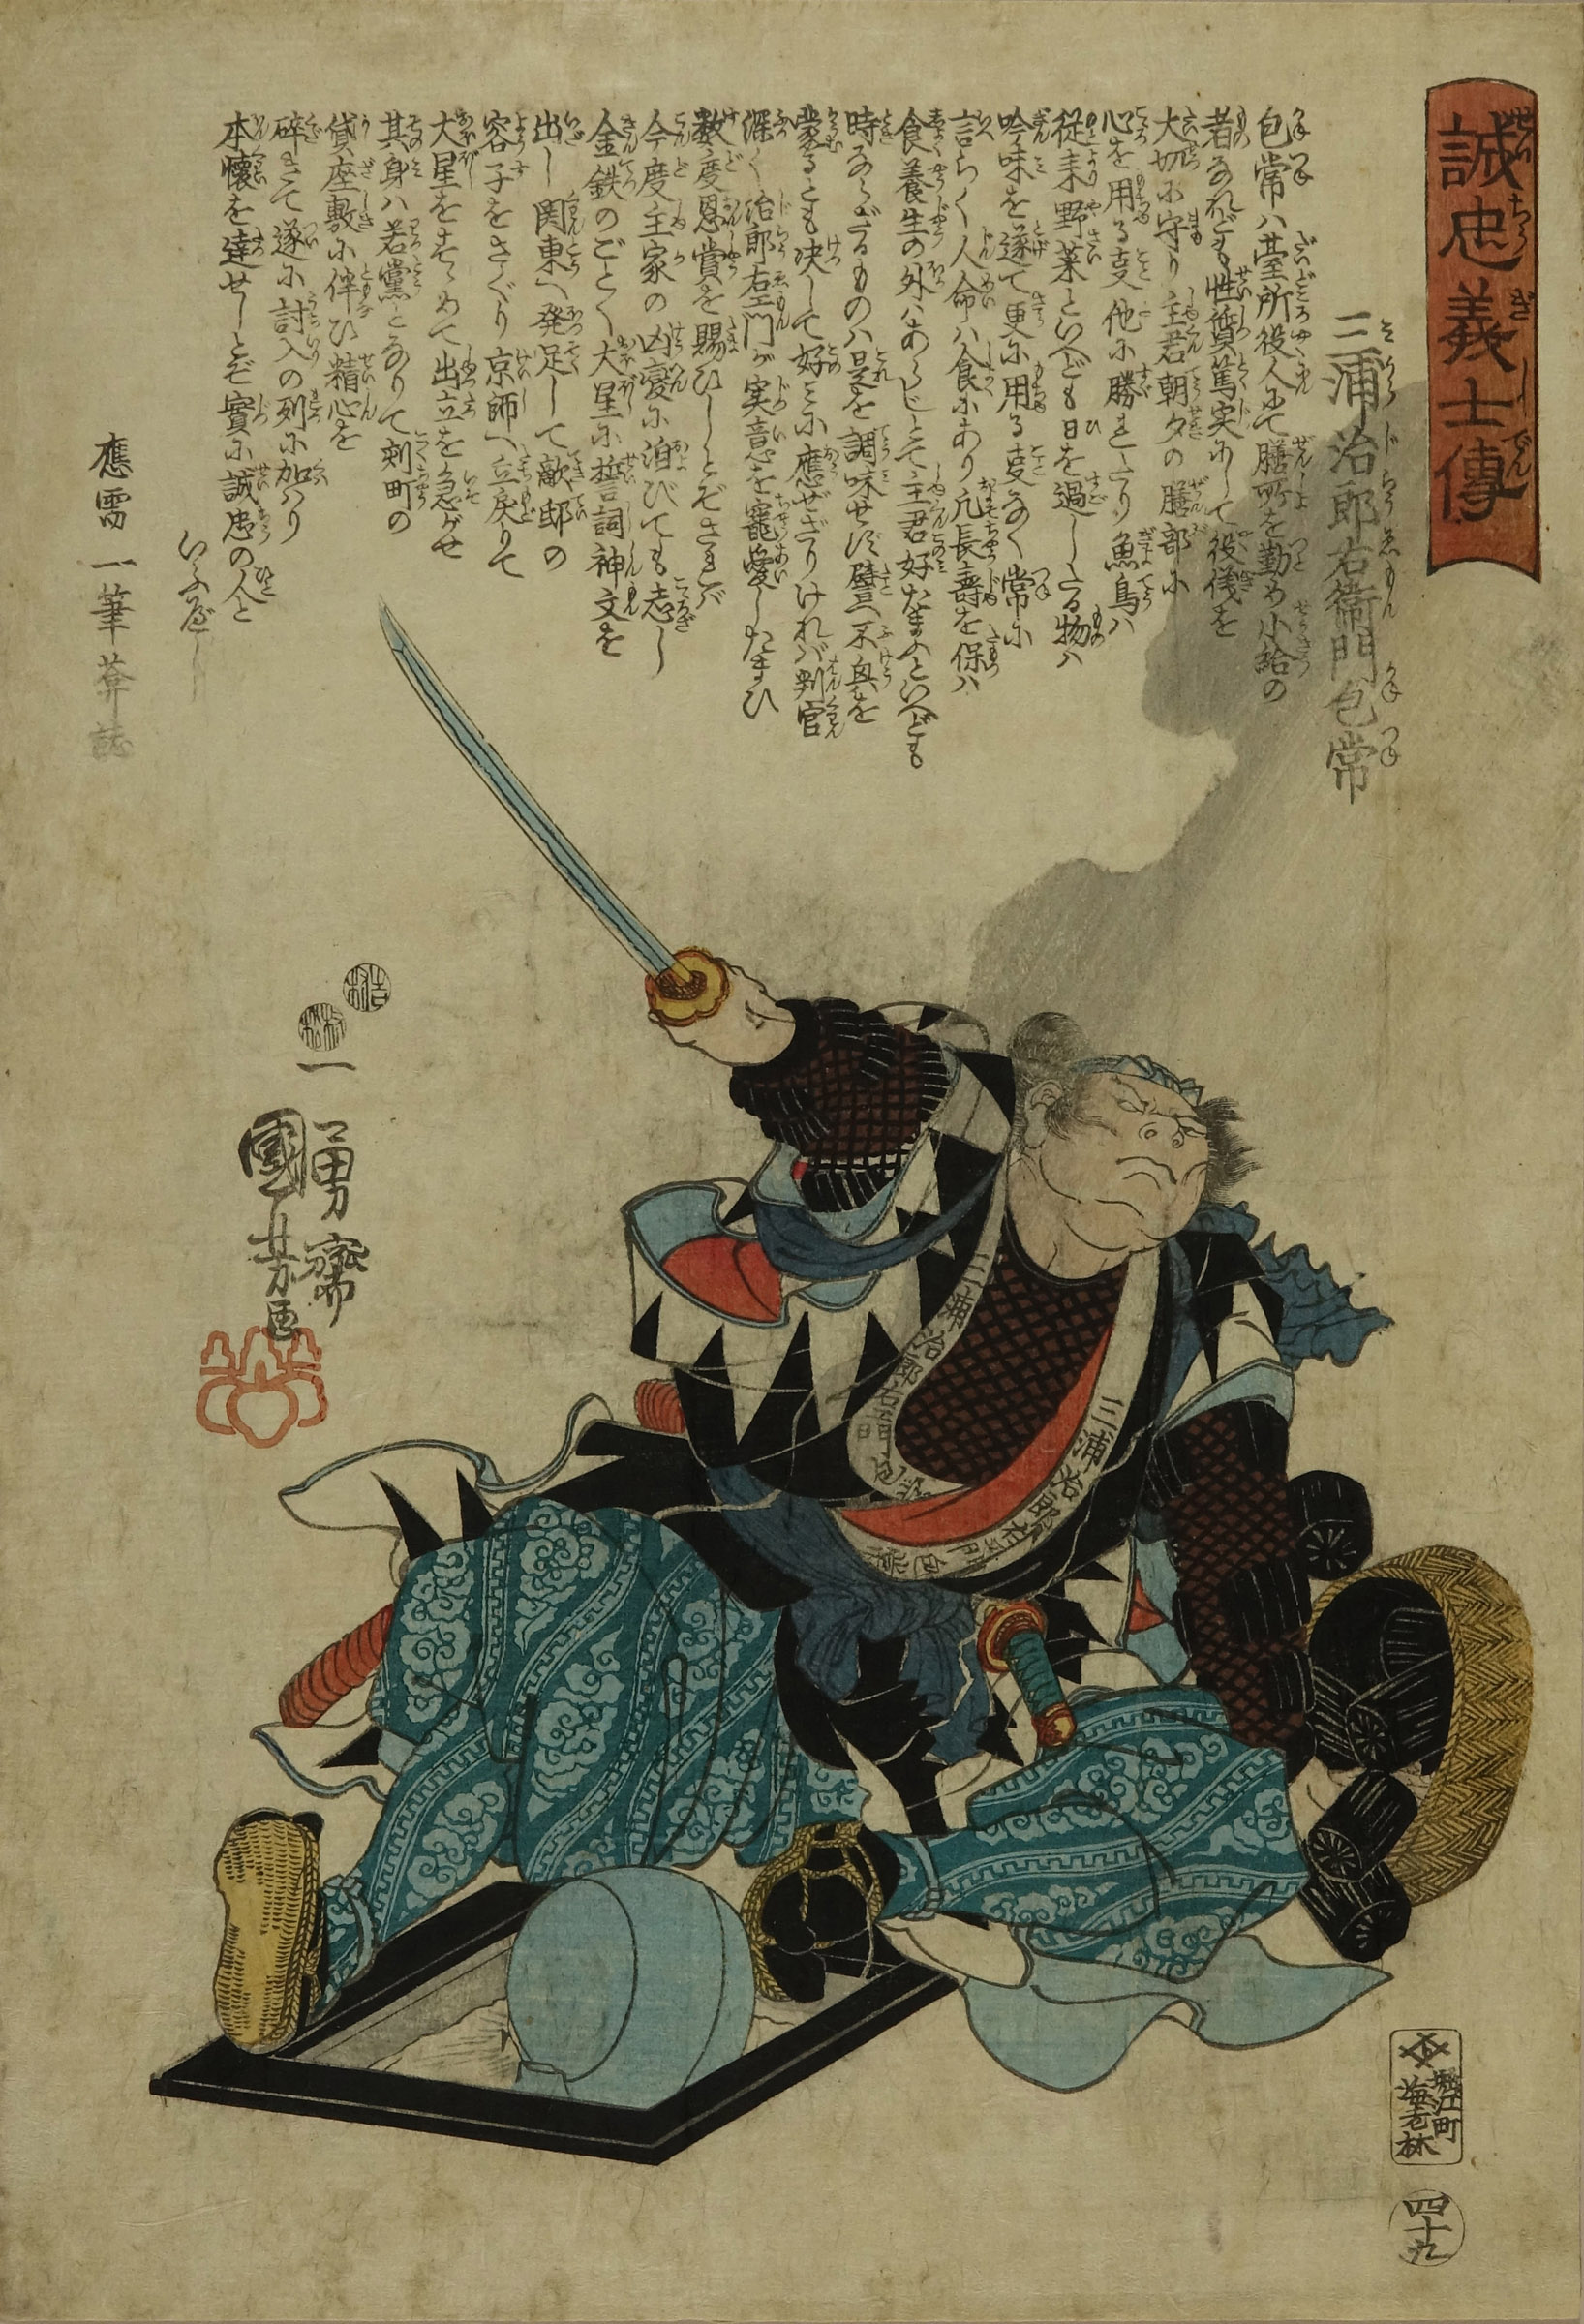 誠忠義士傳
三浦治郎右衛門包常
包常ハ䑓所役人にて膳所を勤め小給の
者なれども性質篤実にして役儀を
大切に守り主君朝夕の膳部に
心を用る叓他に勝れたり魚鳥ハ
従来野菜といへども日を過したる物ハ
吟味を遂て更に用る叓なく常に
言らく人命ハ食にあり凢長壽を保ハ
食養生の外ハあらじとて主君好たまふといへども
時ならざるものハ是を調味せず譬へ不興を
蒙るとも決して好ミに應ぜざりけれバ判官
深く治郎右エ門が実意を寵愛したまひ
数度恩賞を賜ひしとぞされバ
今度主家の凶変に泊びても志し
金鉄のごとく大星に誓詞神文を
出し関東へ発足して敵邸の
容子をさぐり京師へ立戻りて
大星をすゝめて出立を急がせ
其身ハ若黨となりて刺町の
貸座敷に伴ひ精心を
碎きて遂に討入の列に加ハり
本懐を達せしとぞ實に誠忠の人と
いふべし
應需 一筆葊誌
一勇齋
國芳画
三浦治郎右エ門包常
三浦治郎右エ門包常
堀江町
海老林
四十九